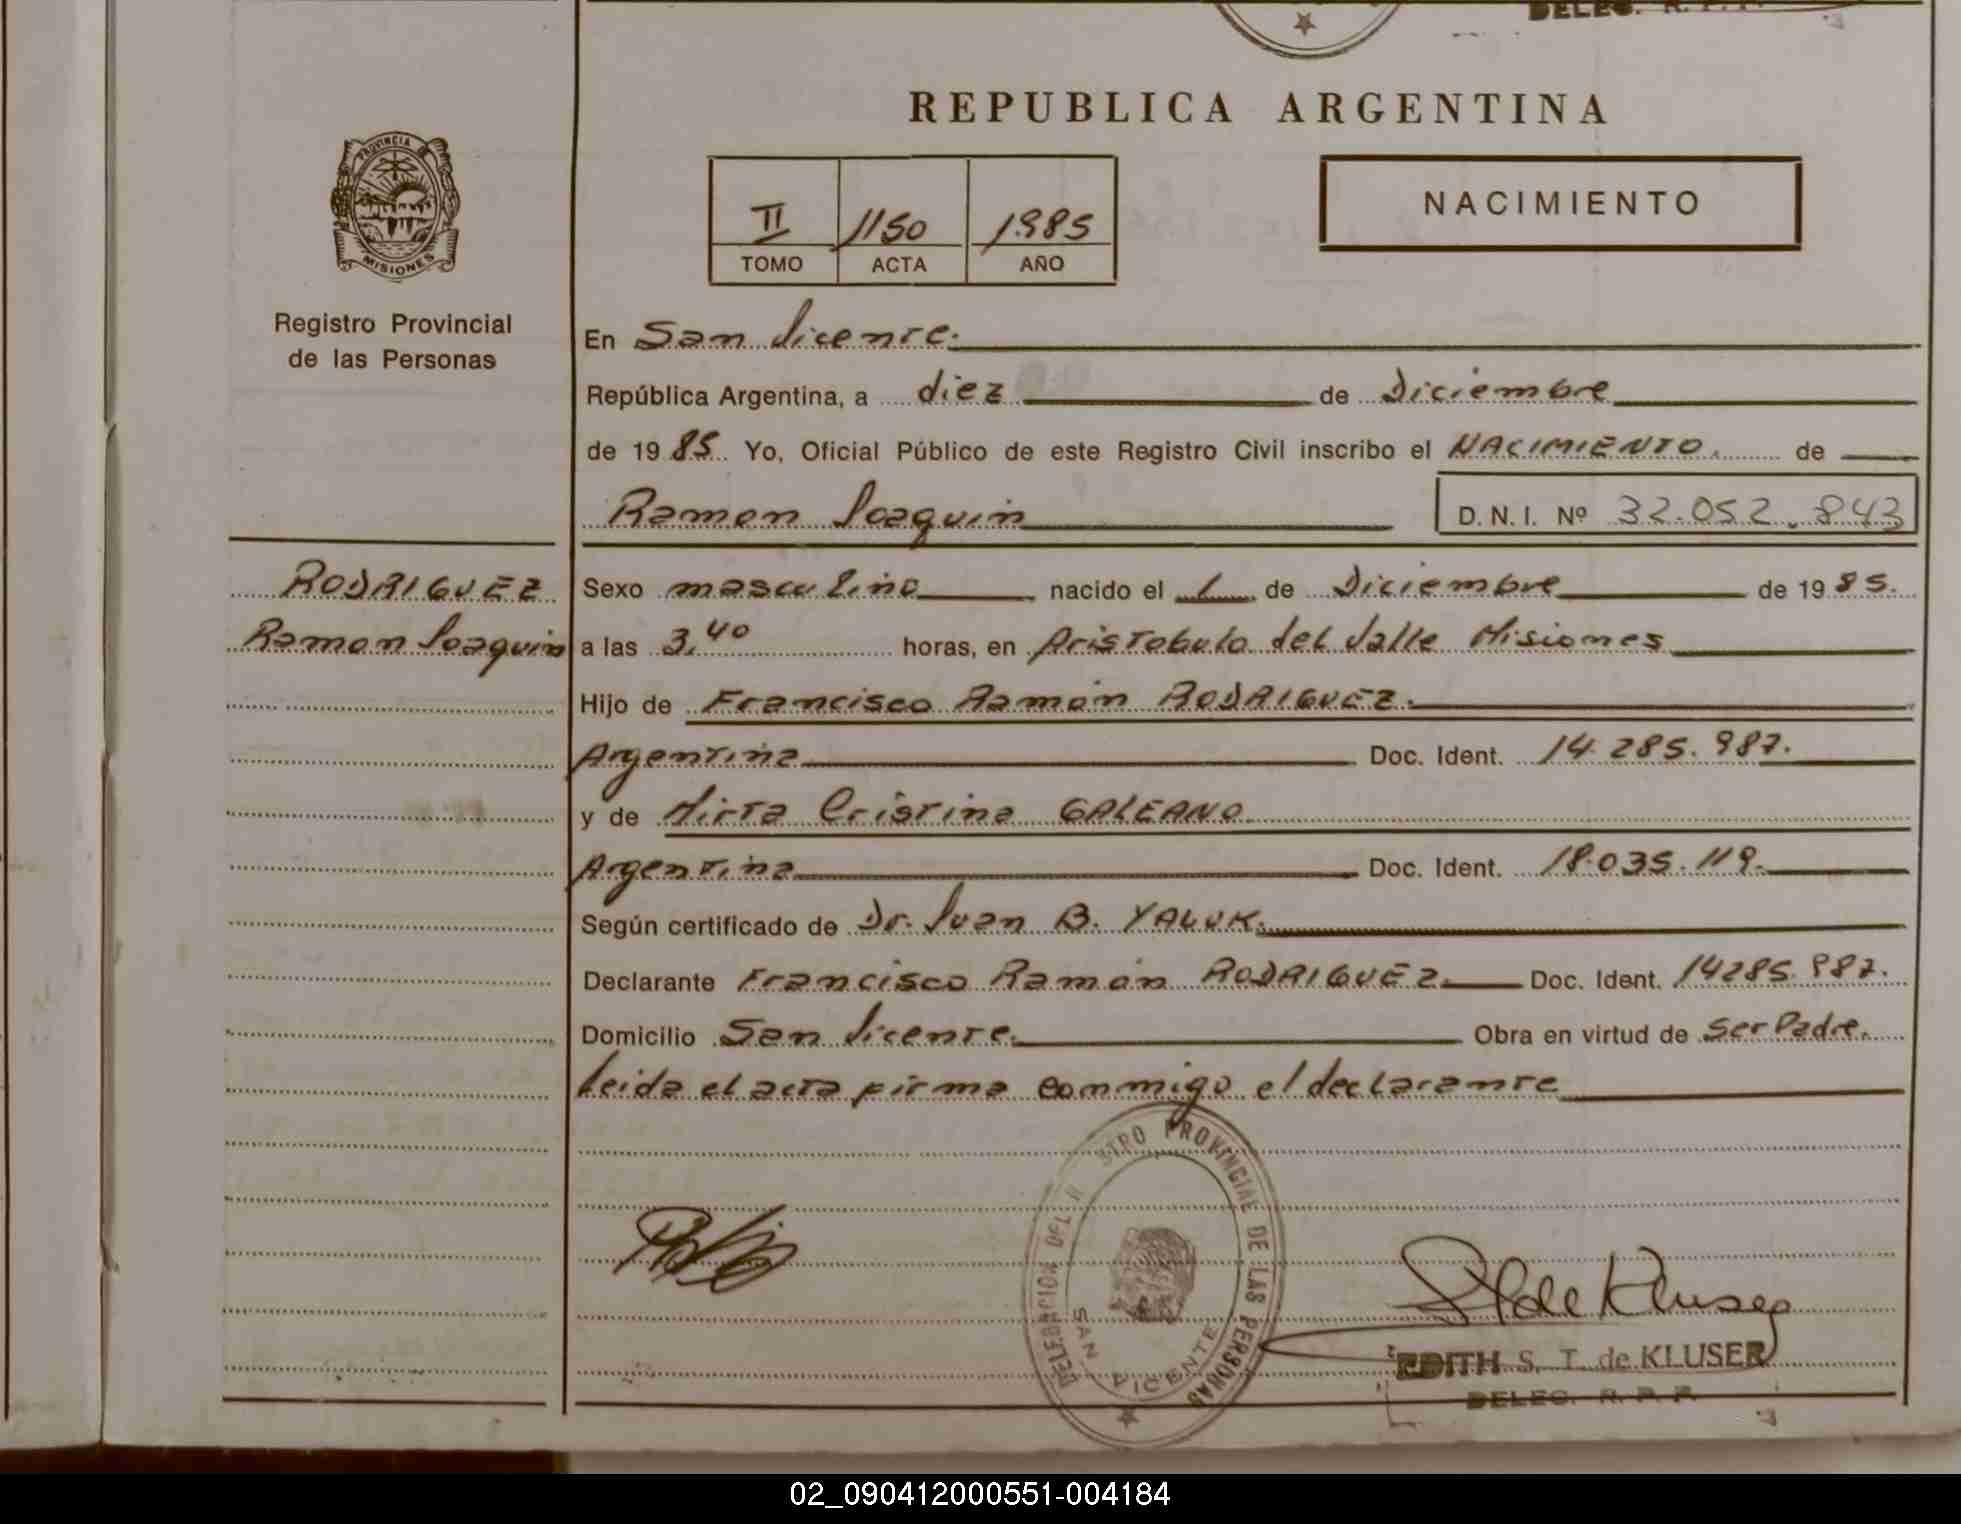 DELEG. R. P. P.
REPUBLICA ARGENTINA
PROVINCIA DE
MISIONES
II 1150 1985
TOMO ACTA AÑO
NACIMIENTO
Registro Provincial
de las Personas
En San Vicente.
República Argentina, a diez de Diciembre
de 1985. Yo, Oficial Público de este Registro Civil inscribo el NACIMIENTO. de
Ramon Joaquin D. N. I. Nº 32.052.843
RODRIGUEZ
Ramon Joaquin
Sexo masculino nacido el 1 de Diciembre de 1985.
a las 3,40 horas, en Aristobulo del Valle Misiones
Hijo de Francisco Ramón RODRIGUEZ.
Argentina Doc. Ident. 14.285.987.
y de Mirta Cristina GALEANO
Argentina Doc. Ident. 18.035.119.
Según certificado de Dr. Juan B. YALUK.
Declarante Francisco Ramón RODRIGUEZ. Doc. Ident. 14285.987.
Domicilio San Vicente. Obra en virtud de ser Padre.
Leida el acta firma conmmigo el declarante
DELEGACION DEL R STRO PROVINCIAL DE LAS PERSONAS
SAN VICENTE
de Kluser
EDITH S. T. de KLUSER
DELEG. R. P. P.
02_090412000551-004184